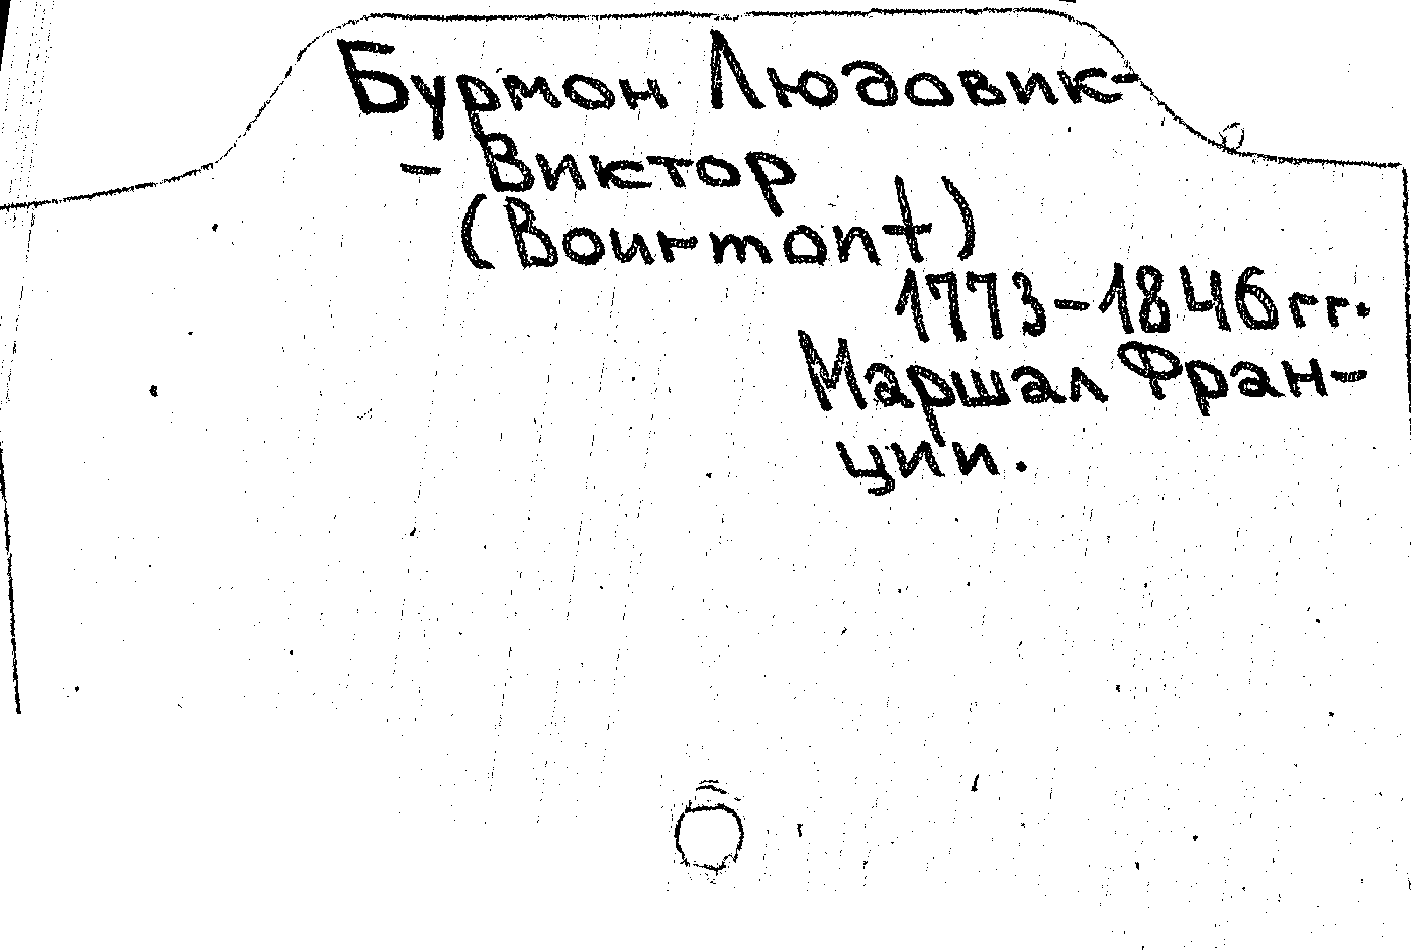 Бурмон Людовик-
- Виктор
(Bourmont)
1773-1846 гг.
Маршал Фран-
ции.